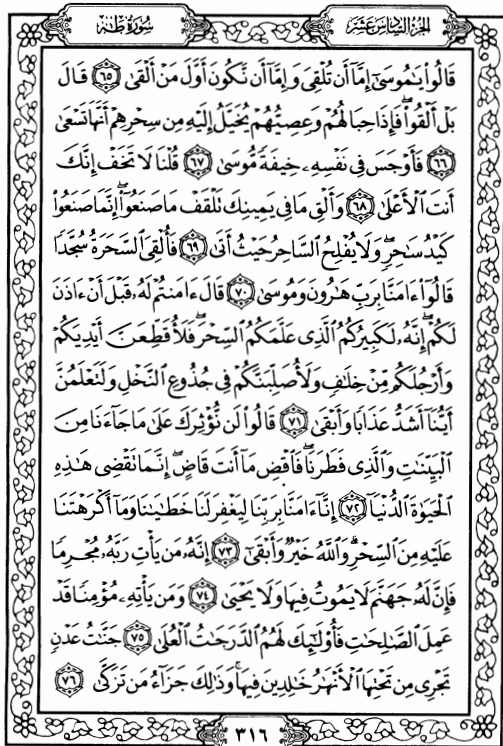 سُورَةُ طه
الجُزْءُ السَّادِسَ عَشَرَ
قَالُوا۟ يَـٰمُوسَىٰٓ إِمَّآ أَن تُلْقِىَ وَإِمَّآ أَن نَّكُونَ أَوَّلَ مَنْ أَلْقَىٰ ٦٥ قَالَ
بَلْ أَلْقُوا۟ ۖ فَإِذَا حِبَالُهُمْ وَعِصِيُّهُمْ يُخَيَّلُ إِلَيْهِ مِن سِحْرِهِمْ أَنَّهَا تَسْعَىٰ
٦٦ فَأَوْجَسَ فِى نَفْسِهِۦ خِيفَةً مُّوسَىٰ ٦٧ قُلْنَا لَا تَخَفْ إِنَّكَ
أَنتَ ٱلْأَعْلَىٰ ٦٨ وَأَلْقِ مَا فِى يَمِينِكَ تَلْقَفْ مَا صَنَعُوٓا۟ ۖ إِنَّمَا صَنَعُوا۟
كَيْدُ سَـٰحِرٍ ۖ وَلَا يُفْلِحُ ٱلسَّاحِرُ حَيْثُ أَتَىٰ ٦٩ فَأُلْقِىَ ٱلسَّحَرَةُ سُجَّدًا
قَالُوٓا۟ ءَامَنَّا بِرَبِّ هَـٰرُونَ وَمُوسَىٰ ٧٠ قَالَ ءَامَنتُمْ لَهُۥ قَبْلَ أَنْ ءَاذَنَ
لَكُمْ ۖ إِنَّهُۥ لَكَبِيرُكُمُ ٱلَّذِى عَلَّمَكُمُ ٱلسِّحْرَ ۖ فَلَأُقَطِّعَنَّ أَيْدِيَكُمْ
وَأَرْجُلَكُم مِّنْ خِلَـٰفٍ وَلَأُصَلِّبَنَّكُمْ فِى جُذُوعِ ٱلنَّخْلِ وَلَتَعْلَمُنَّ
أَيُّنَآ أَشَدُّ عَذَابًا وَأَبْقَىٰ ٧١ قَالُوا۟ لَن نُّؤْثِرَكَ عَلَىٰ مَا جَآءَنَا مِنَ
ٱلْبَيِّنَـٰتِ وَٱلَّذِى فَطَرَنَا ۖ فَٱقْضِ مَآ أَنتَ قَاضٍ ۖ إِنَّمَا تَقْضِى هَـٰذِهِ
ٱلْحَيَوٰةَ ٱلدُّنْيَآ ٧٢ إِنَّآ ءَامَنَّا بِرَبِّنَا لِيَغْفِرَ لَنَا خَطَـٰيَـٰنَا وَمَآ أَكْرَهْتَنَا
عَلَيْهِ مِنَ ٱلسِّحْرِ ۗ وَٱللَّهُ خَيْرٌ وَأَبْقَىٰٓ ٧٣ إِنَّهُۥ مَن يَأْتِ رَبَّهُۥ مُجْرِمًا
فَإِنَّ لَهُۥ جَهَنَّمَ لَا يَمُوتُ فِيهَا وَلَا يَحْيَىٰ ٧٤ وَمَن يَأْتِهِۦ مُؤْمِنًا قَدْ
عَمِلَ ٱلصَّـٰلِحَـٰتِ فَأُو۟لَـٰٓئِكَ لَهُمُ ٱلدَّرَجَـٰتُ ٱلْعُلَىٰ ٧٥ جَنَّـٰتُ عَدْنٍ
تَجْرِى مِن تَحْتِهَا ٱلْأَنْهَـٰرُ خَـٰلِدِينَ فِيهَا ۚ وَذَٰلِكَ جَزَآءُ مَن تَزَكَّىٰ ٧٦
٣١٦